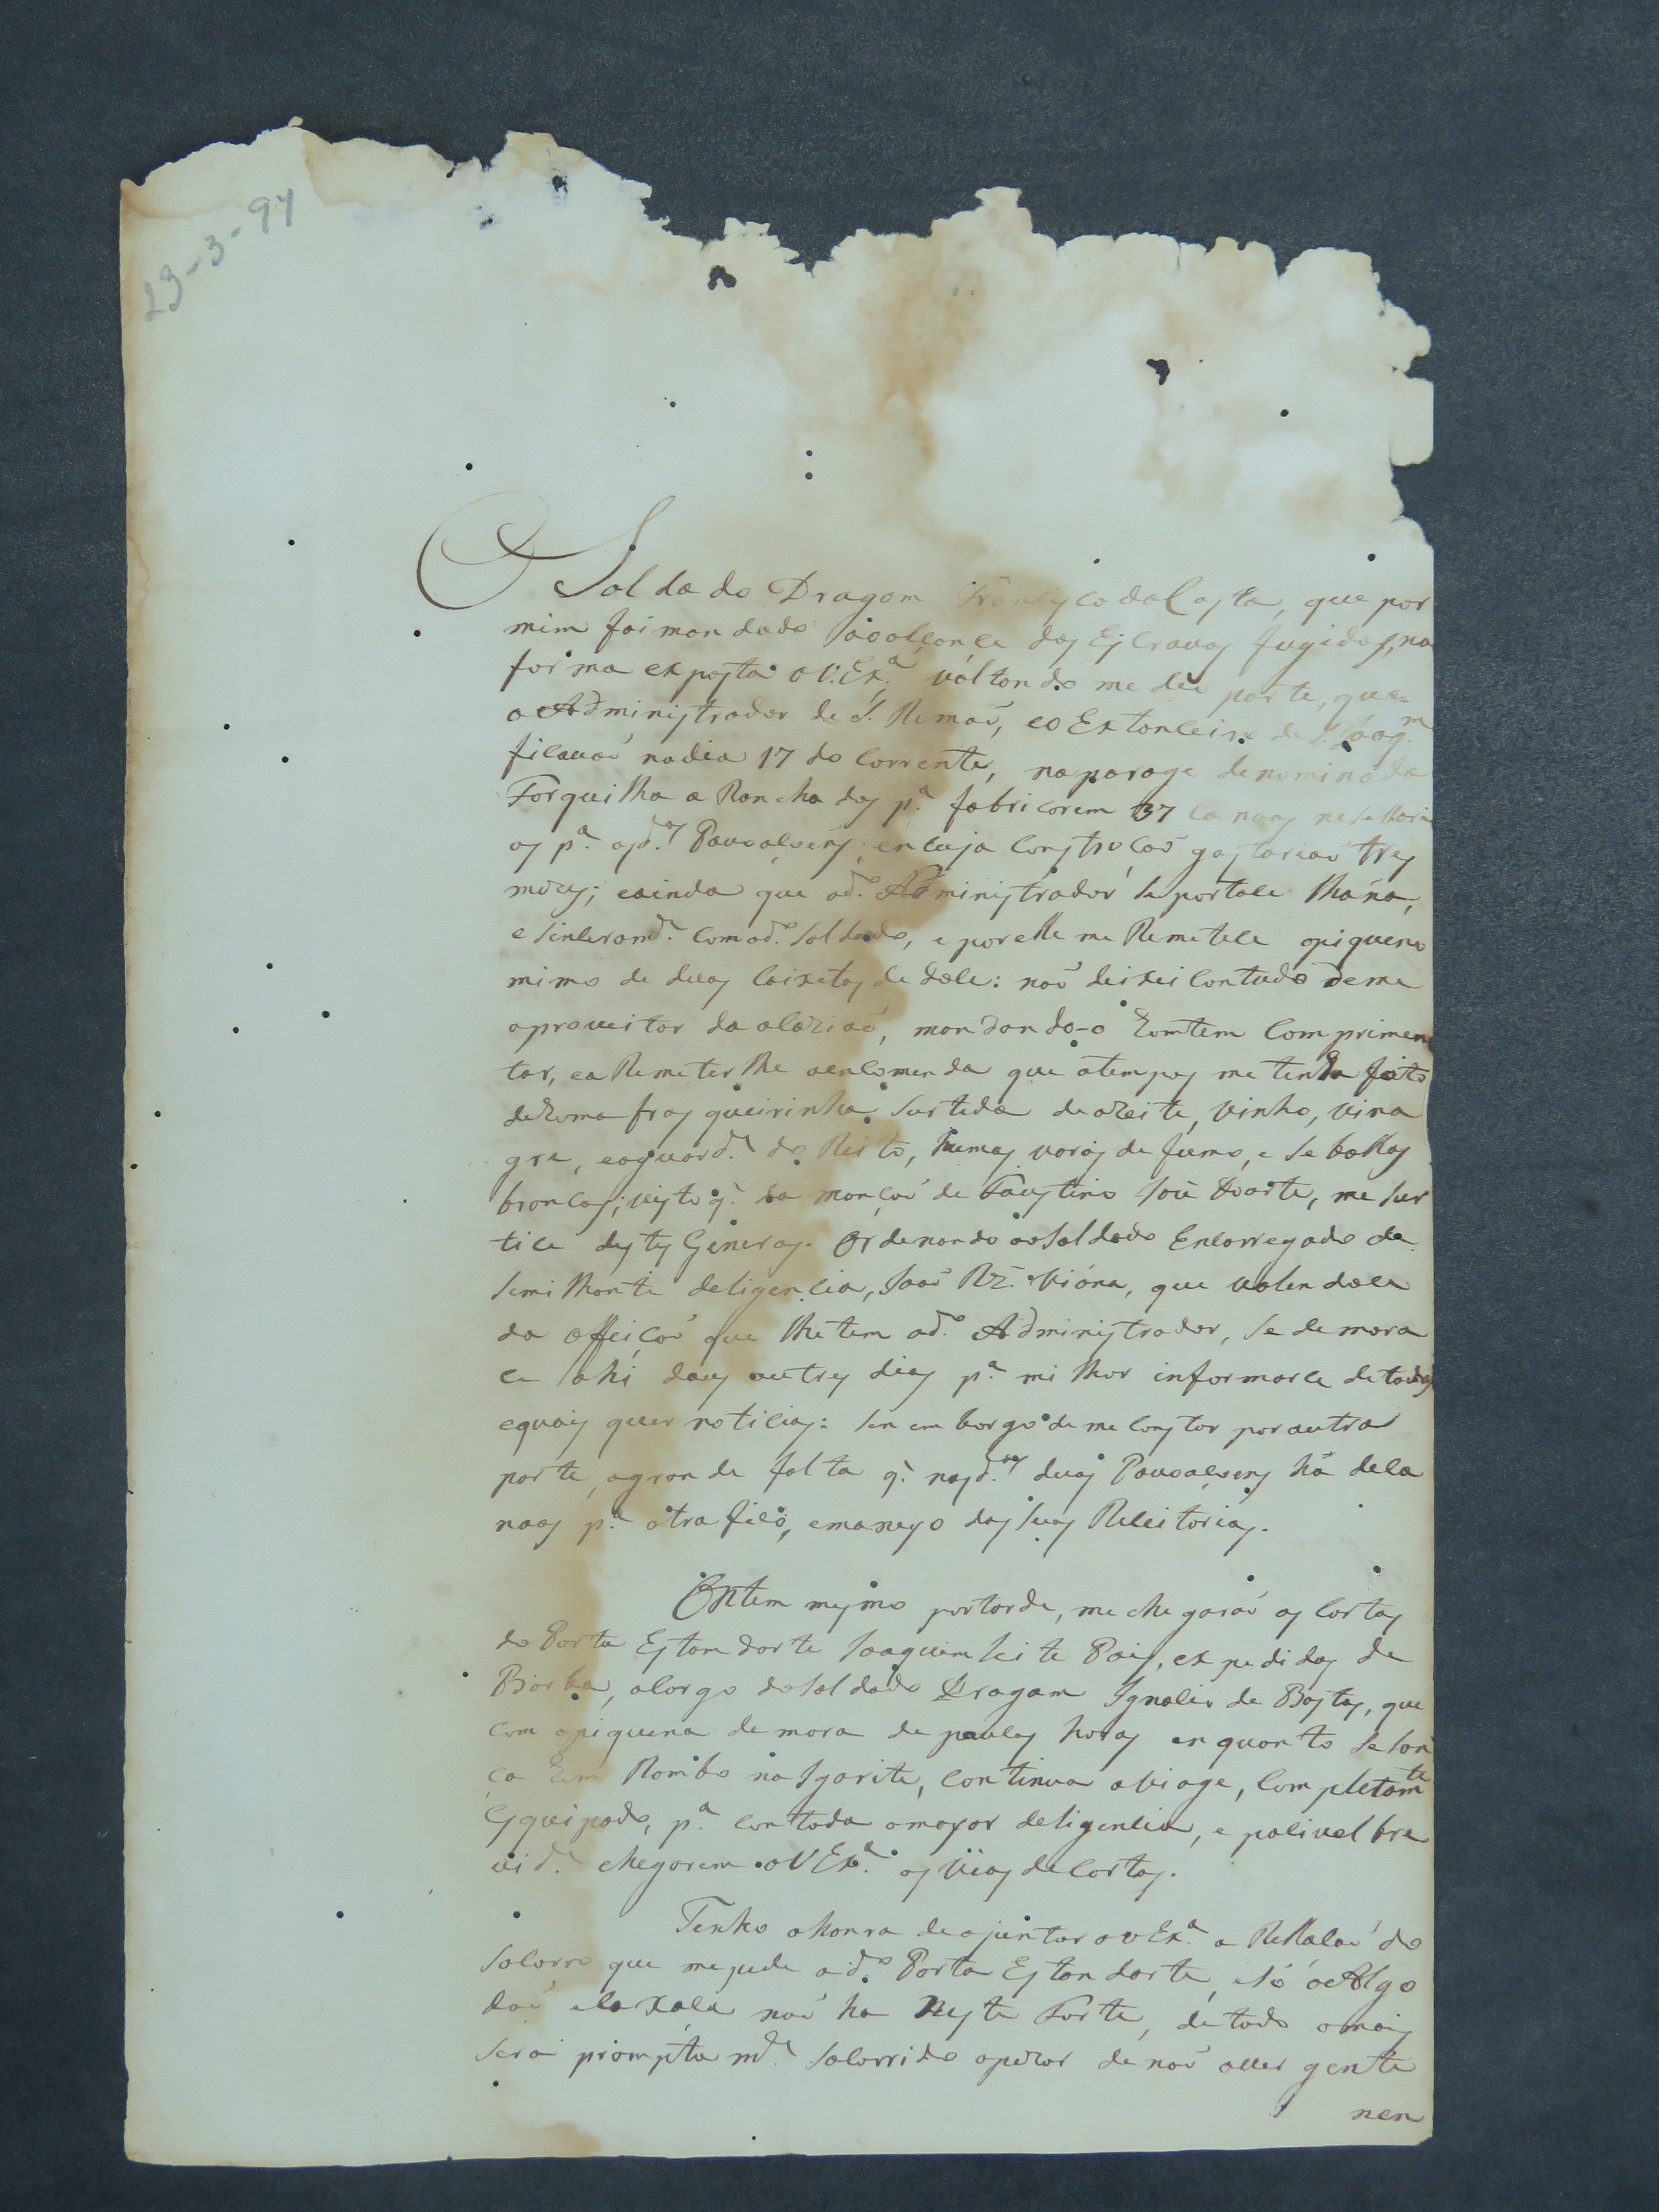 23-3-94
O Soldado Dragam Francisco da Costa, que por
mim foi mandado ao alcance dos Escravos fugidos, na
forma exposta a V. Exª. voltando me deu parte, que
o Administrador de S. Romaõ, e o Extanceiro de S. Joaqm.
ficavaõ no dia 17 do corrente, na parage denominada
Forquilha a Ranchados pª. fabricarem 37 canoas necessarias
pª. as d.as Povoaçoens, en cuja construçaõ gastariaõ tres
mezes; e ainda que o d.º Administrador se portace lhana,
e sinceram.e com o d.º Soldado, e por elle me Remetece o piqueno
mimo de duas caixetas de doce: naõ deixei contudo de me
aproveitar da ocaziaõ, mandando-o homtem comprimen
tar, e a Remeterlhe a encomenda que a tempos me tinha feito
de huma frasqueirinha surtida de azeite, vinho, vina
gre, e aguard.e do Reino, humas varas de fumo, e sebollas
brancas; visto q̃ da monçaõ de Faustino Joze Duarte, me sur
tice destes Generos. Ordenando ao Soldado Encarregado de
semilhante deligencia, Joaõ Rz. Viána, que valendoce
da affeiçaõ que lhe tem o d.º Administrador, se demora
ce ahi dous ou tres dias pª. milhor informarce de todas
e quais quer noticias: sen embargo de me constar por outra
parte, a grande falta q̃ nas d.as duas Povoaçoens há de ca
noas pª. o trafico, e manejo das suas Receitorias.
Ontem mesmo por tarde, me chegaraõ as cartas
do Porta Estandarte Joaquim Leite Pais, expedidas de
Borba, a cargo do Soldado Dragam Ignacio de Bastos, que
com a piquena demora de poucas horas en quanto se con
ça hum Rombo na Igarite, continua a viage, completam.te
esquipado, pª. con toda a mayor deligencia, e pocivel bre
vid.e chegarem a V Exª. as vias de cartas.
Tenho a honra de ajuntar a V Exª. a Rellaçaõ do
socorro que me pede o d.º Porta Estandarte, e só o Algo
daõ e la naõ ha neste Forte, de todo o mais
será prompta m.e socorrido apezar de naõ aver gente
nen